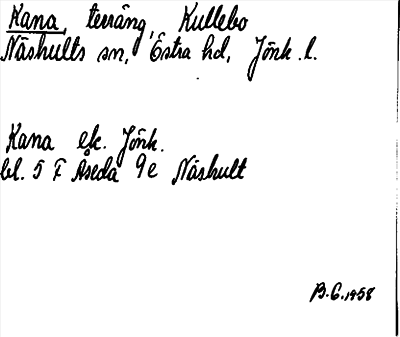 Kana, terräng, Kullebo
Näshults sn, Östra hd, Jönk. l.
Kana ek. Jönk.
bl. 5 F Åseda 9e Näshult
B.G. 1958